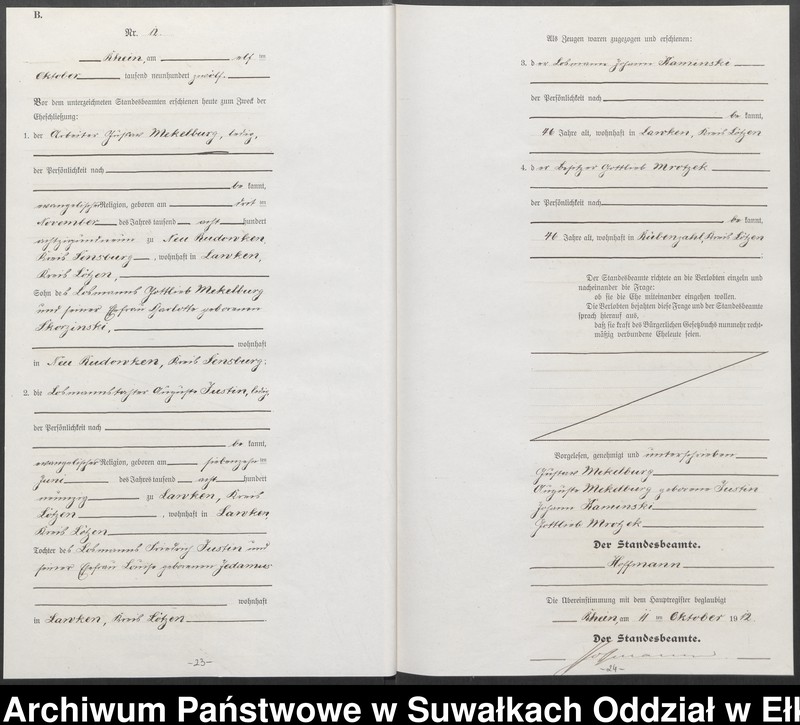 B.
Nr. 12.
Rhein, am elf ten
Oktober tausend neunhundert zwölf.
Vor dem unterzeichneten Standesbeamten erschienen heute zum Zweck der
Eheschließung:
1. der Arbeiter Gustav Mekelburg, ledig,
der Persönlichkeit nach
be kannt,
evangelischer Religion, geboren am ten
November des Jahres tausend acht hundert
zu Neu Rudowken,
Kreis Sensburg, wohnhaft in Lawken,
Kreis Lötzen,
Sohn des Losmanns Gottlieb Mekelburg
und seiner Ehefrau Charlotte geborenen
Skorzinski,
wohnhaft
in Neu Rudowken, Kreis Sensburg.
2. die Losmannstochter Auguste Justin, ledig,
der Persönlichkeit nach
be kannt,
evangelischer Religion, geboren am siebenzehn ten
Juni des Jahres tausend acht hundert
neunzig zu Lawken, Kreis
Lötzen, wohnhaft in Lawken
Kreis Lötzen
Tochter des Losmanns Friedrich Justin und
seiner Ehefrau Louise geborenen Jedamus
wohnhaft
in Lawken, Kreis Lötzen.
-23-
Als Zeugen waren zugezogen und erschienen:
3. der Losmann Johann Kaminski
der Persönlichkeit nach
be kannt,
46 Jahre alt, wohnhaft in Lawken, Kreis Lötzen
4. der Besitzer Gottlieb Mrotzek
der Persönlichkeit nach
be kannt,
46 Jahre alt, wohnhaft in Rübenzahl, Kreis Lötzen
Der Standesbeamte richtete an die Verlobten einzeln und
nacheinander die Frage:
ob sie die Ehe miteinander eingehen wollen.
Die Verlobten bejahten diese Frage und der Standesbeamte
sprach hierauf aus,
daß sie kraft des Bürgerlichen Gesetzbuchs nunmehr recht-
mäßig verbundene Eheleute seien.
Vorgelesen, genehmigt und unterschrieben
Gustav Mekelburg
Auguste Mekelburg geborene Justin
Johann Kaminski
Gottlieb Mrotzek
Der Standesbeamte.
Hoffmann
Die Übereinstimmung mit dem Hauptregister beglaubigt
Rhein, am 11 ten Oktober 1912
Der Standesbeamte.
Hoffmann
-24-
Archiwum Państwowe w Suwałkach Oddział w Eł